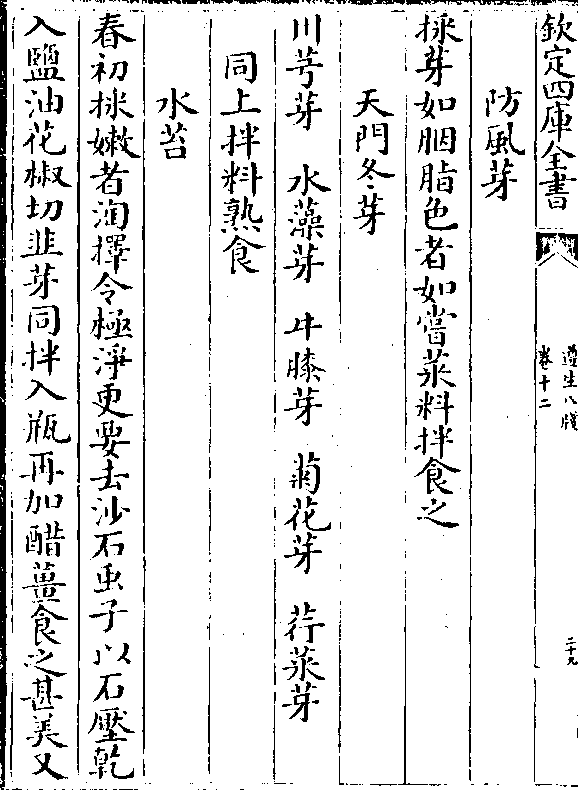 欽定四庫全書
遵生八牋
卷十二
二十九
防風芽
採芽如胭脂色者如嘗菜料拌食之
天門冬芽
川芎芽 水藻芽 牛膝芽 菊花芽 荇菜芽
同上拌料熟食
水苔
春初採嫩者淘擇令極淨更要去沙石虫子以石壓乾
入鹽油花椒切韭芽同拌入瓶再加醋薑食之甚美又